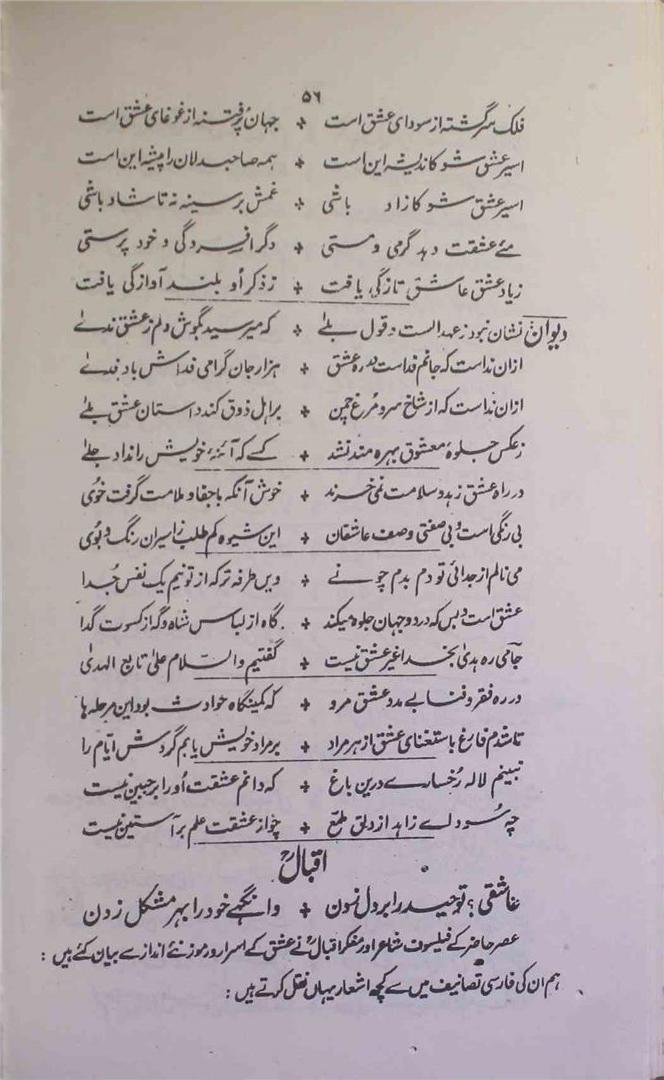 ۵۶
فلک سرگشته از سودای عشق است ※ جهان پُر فتنه از غوغای عشق است
اسیر عشق شو کاندیشه این است ※ همه صاحبدلان را پیشه این است
اسیر عشق شو کازاد باشی ※ غمش بر سینه نه تا شاد باشی
مئے عشقت دہد گرمی و مستی ※ دگر افسردگی و خود پرستی
زیاد عشق عاشق تازگی یافت ※ ز ذکر اُو بلند آوازگی یافت
دیوان نشان نبود ز عہد الست و قول بلےٰ ※ که میرسید بگوش دلم ز عشق ندےٰ
ازان نداست که جانم فداست در ره عشق ※ ہزار جان گرامی فداش باد فدےٰ
ازان نداست که از شاخ سرو مُرغ چمن ※ بر اہل ذوق کند داستان عشق بلےٰ
ز عکس جلوۂ معشوق بہره مند نشد ※ کسے که آئنۂ خویش را نداد جلےٰ
در راه عشق زہد و سلامت نمی خرند ※ خوش آنکه باجفا و ملامت گرفت خُوی
بی رنگی است و بی صفتی وصف عاشقان ※ این شیوه کم طلب ز اسیران رنگ و بُوی
می نالم از جدائی تو دم بدم چو نے ※ ویں طرفه تر که از تو نیم یک نفس جُدا
عشق است و بس که در دو جہان جلوه میکند ※ گاه از لباس شاه و گه از کسوت گدا
جامی ره ہدیٰ بخدا غیر عشق نیست ※ گفتیم والسّلام علیٰ تابع الہدیٰ
در ره فقر و فنا بے مدد عشق مرو ※ که کمینگاه حوادث بود این مرحله ہا
تا شدم فارغ باستغنای عشق از ہر مراد ※ بر مراد خویش یابم گردش ایّام را
نبینم لاله رُخسارے درین باغ ※ که داغ عشقت اُو را بر جبین نیست
چه سُود اے زاہد از دلق ملمّع ※ چو از عشقت علم بر آستین نیست
اقبالؒ
عاشقی؟ توحید را بر دل زدن ※ وانگہے خود را بہر مشکل زدن
عصر حاضر کے فیلسوف شاعر اور مفکر اقبالؒ نے عشق کے اسرار و رموز نئے انداز سے بیان کئے ہیں :
ہم ان کی فارسی تصانیف میں سے کچھ اشعار یہاں نقل کرتے ہیں :